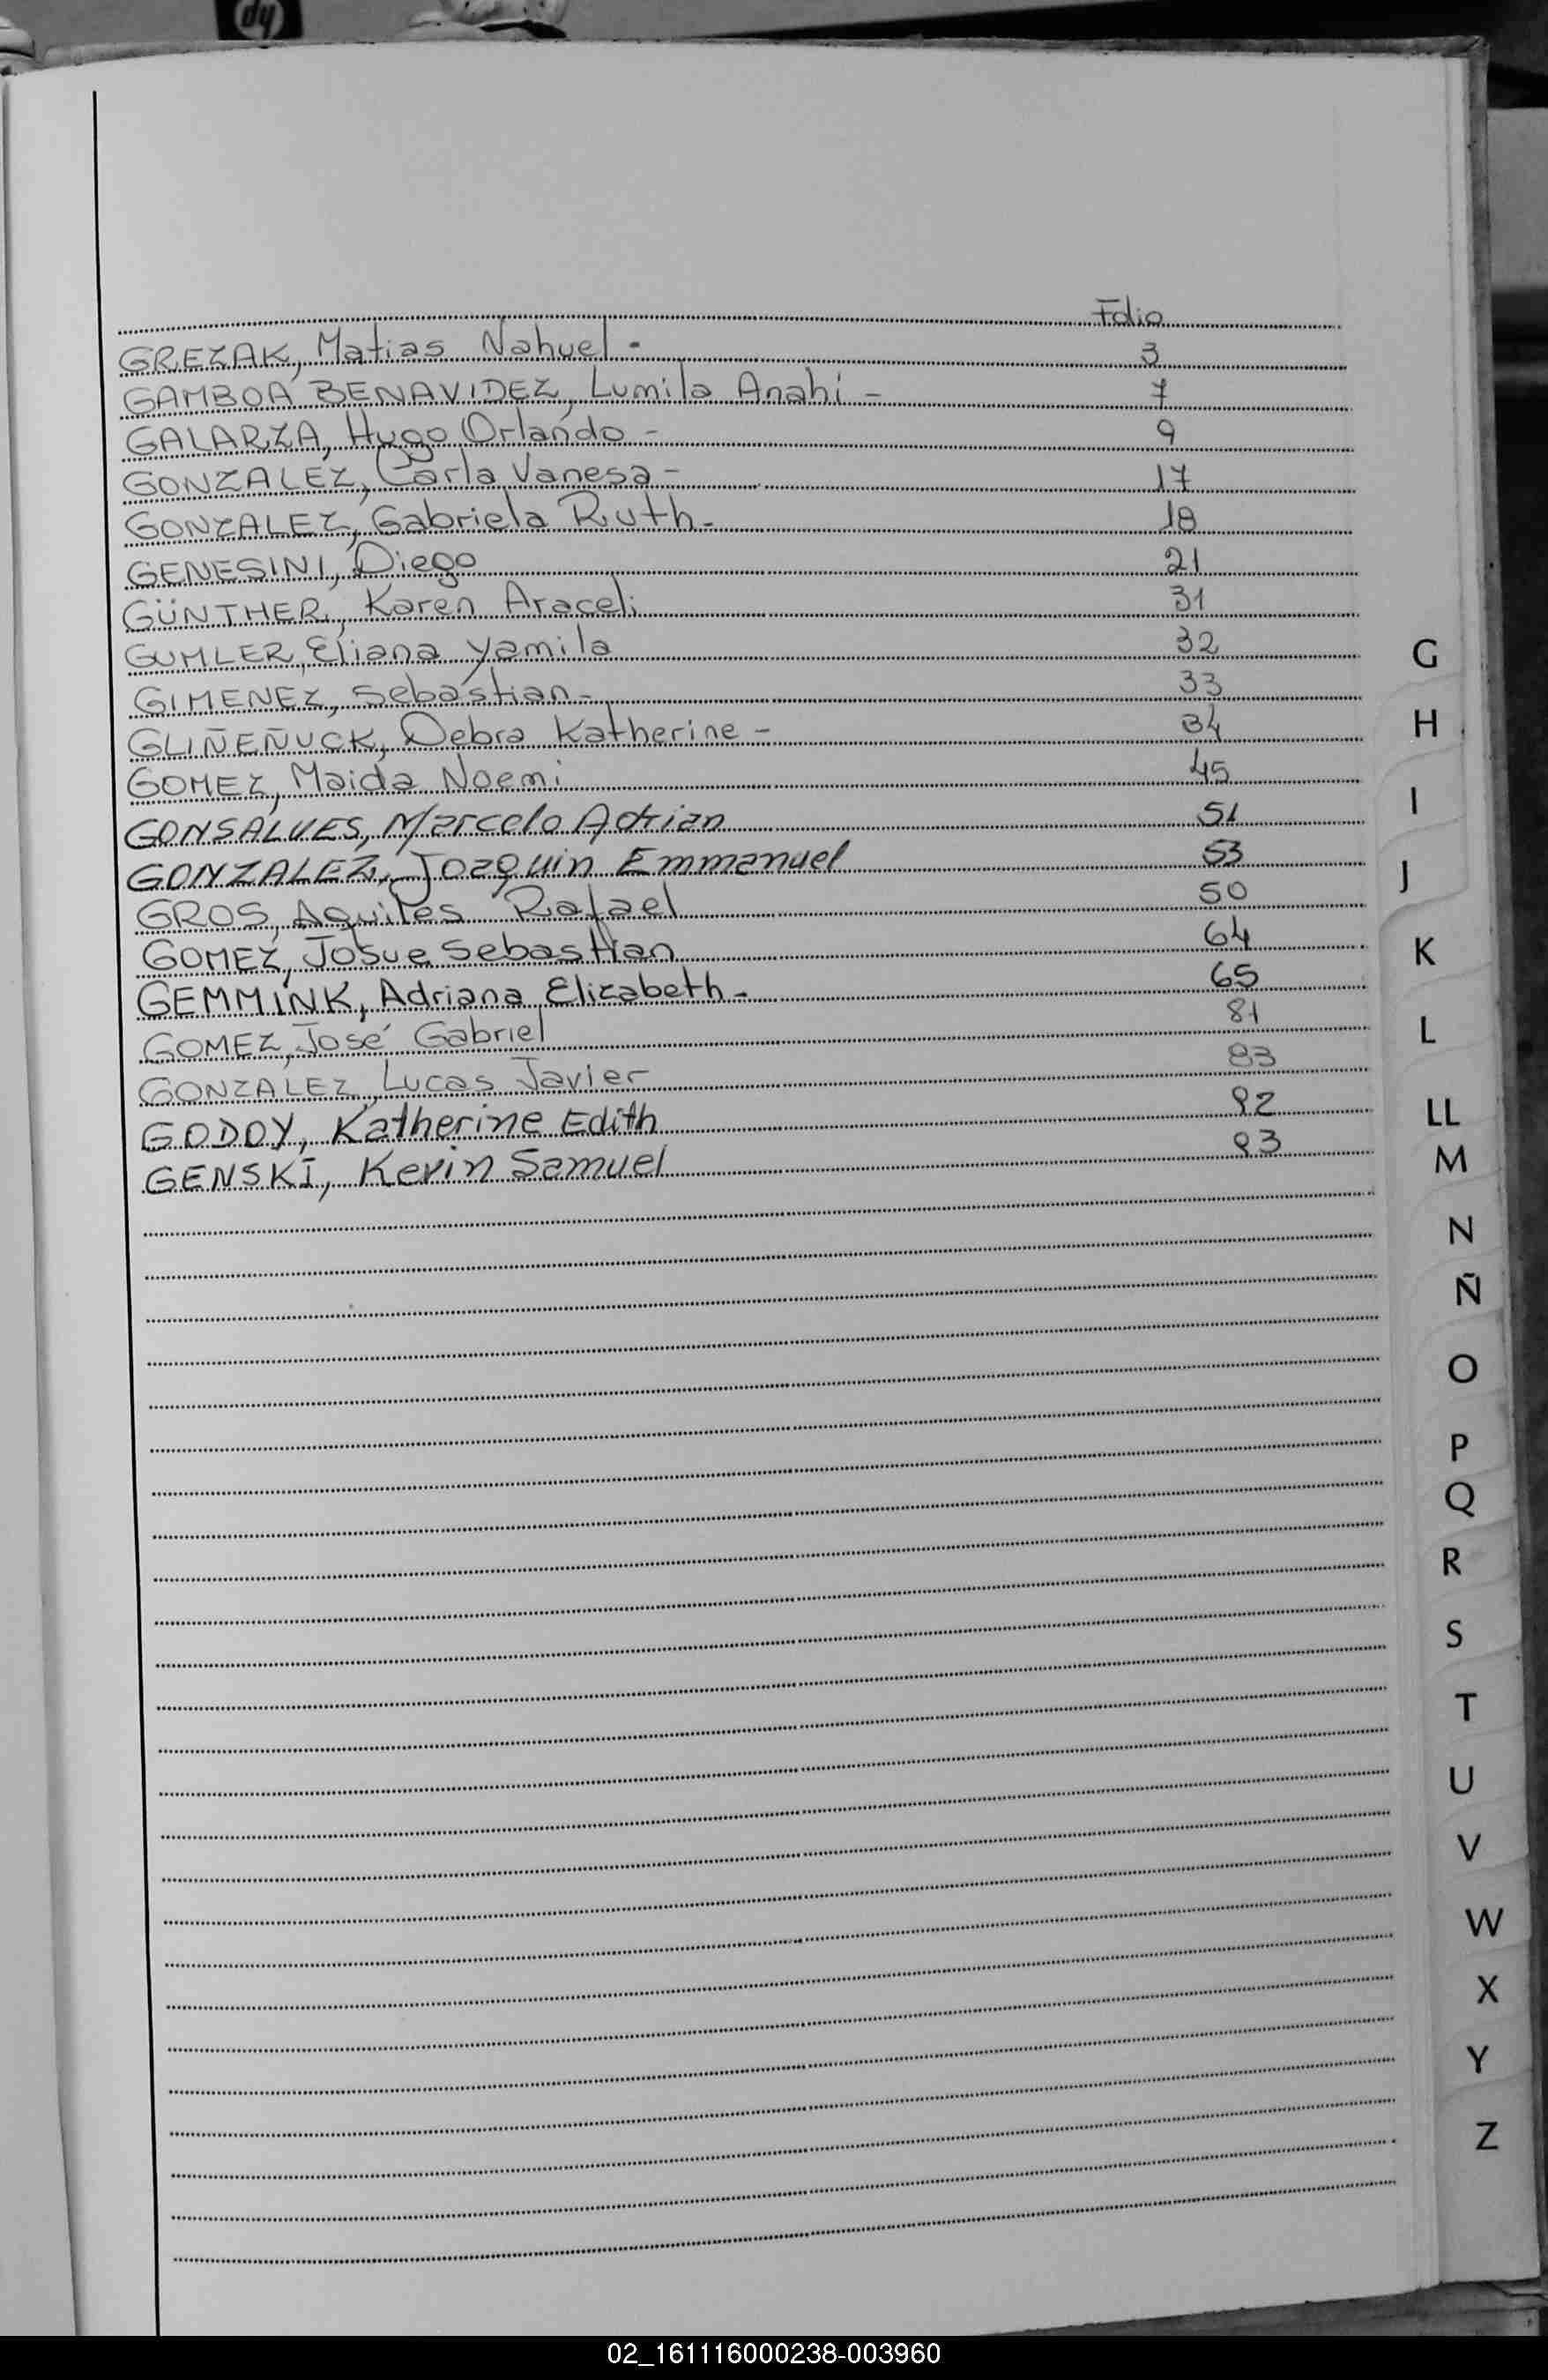 hp
Folio
GREZAK, Matias Nahuel - 3
GAMBOA BENAVIDEZ, Lumila Anahi - 7
GALARZA, Hugo Orlando - 9
GONZALEZ, Carla Vanesa - 17
GONZALEZ, Gabriela Ruth - 18
GENESINI, Diego 21
GÜNTHER, Karen Araceli 31
GUMLER, Eliana Yamila 32
GIMENEZ, Sebastian - 33
GLIÑEÑUCK, Debra Katherine - 34
GOMEZ, Maida Noemi 45
GONSALVES, Marcelo Adrian 51
GONZALEZ, Joaquin Emmanuel 53
GROS, Aquiles Rafael 50
GOMEZ, Josue Sebastian 64
GEMMINK, Adriana Elizabeth - 65
GOMEZ, José Gabriel 81
GONZALEZ, Lucas Javier 83
GODOY, Katherine Edith 92
GENSKI, Kevin Samuel 93
G
H
I
J
K
L
LL
M
N
Ñ
O
P
Q
R
S
T
U
V
W
X
Y
Z
02_161116000238-003960